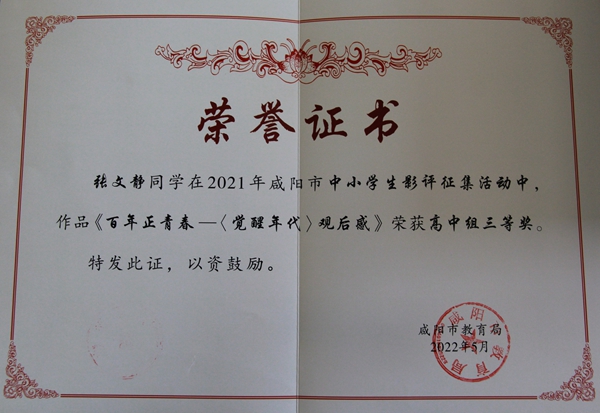 荣誉证书
张文静同学在2021年咸阳市中小学生影评征集活动中，
作品《百年正青春—〈觉醒年代〉观后感》荣获高中组三等奖。
特发此证，以资鼓励。
咸阳市教育局
2022年5月
咸阳市教育局